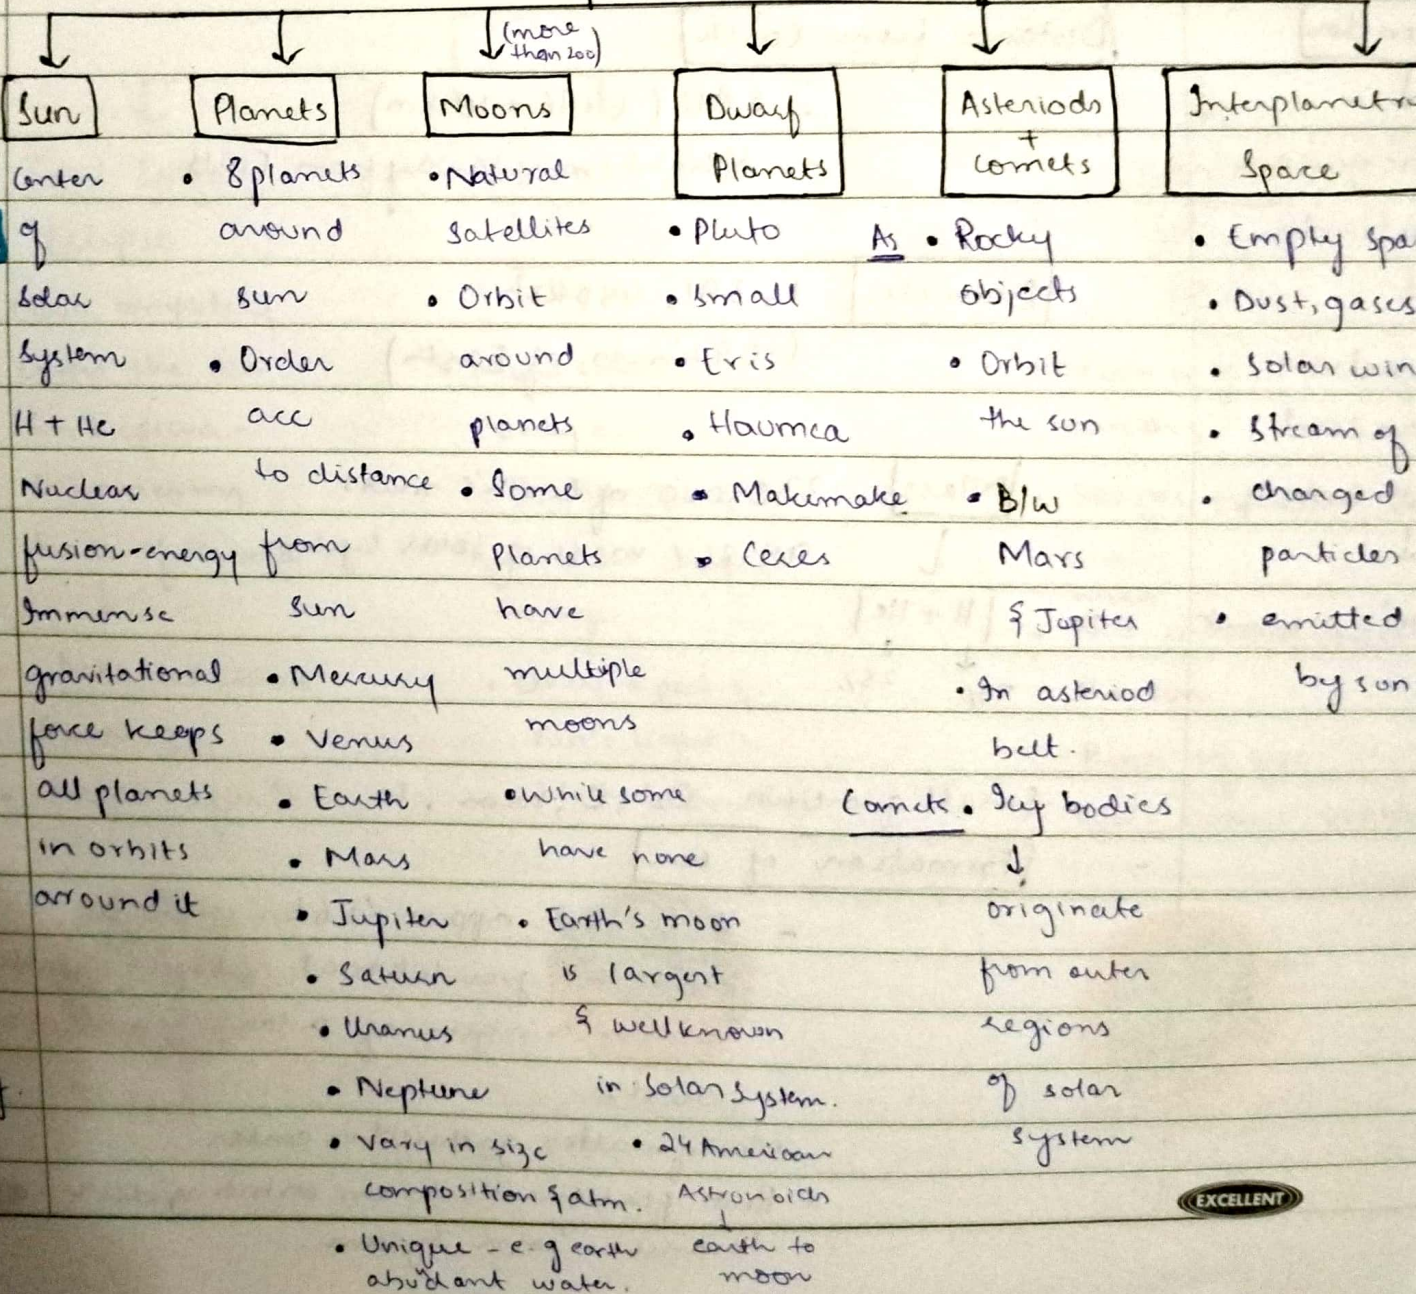 (more
than 200)
Sun
Center
of
Solar
System
H + He
Nuclear
fusion-energy
Immense
gravitational
force keeps
all planets
in orbits
arround it
Planets
• 8 planets
around
sun
• Order
acc
to distance
from
sun
• Mercury
• Venus
• Earth
• Mars
• Jupiter
• Saturn
• Uranus
• Neptune
• Vary in size
composition & atm.
• Unique - e.g earth
abudant water.
Moons
• Natural
satellites
• Orbit
around
planets
• Some
planets
have
multiple
moons
• while some
have none
• Earth's moon
is largest
& wellknown
in Solar System.
• 24 American
earth to
moon
Dwarf
Planets
• Pluto
• Small
• Eris
• Haumea
• Makemake
• Ceres
Asteriods
+
Comets
As • Rocky
objects
• Orbit
the sun
• B/w
Mars
& Jupiter
• In asteriod
belt.
Comets • Icy bodies
↓
originate
from outer
regions
of solar
system
Interplanetr
Space
• Empty spa
• Dust, gases
• Solar win
• Stream of
• charged
particles
• emitted
by sun
EXCELLENT